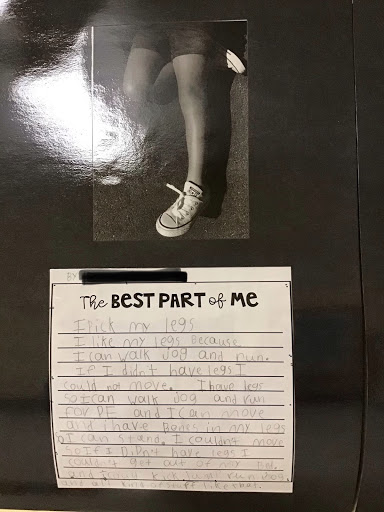 BY
The BEST PART of ME
I pick my legs
I like my legs Because
I can walk Jog and run.
If I didn't have legs I
could not move. I have legs
so I can walk Jog and Run
for PE and I can move
and i have Bones in my legs
so I can stand. I couldn't move
so If I Didn't have legs I
couldn't get out of my Bed.
and I could kick run Jog
and and stuff like that.